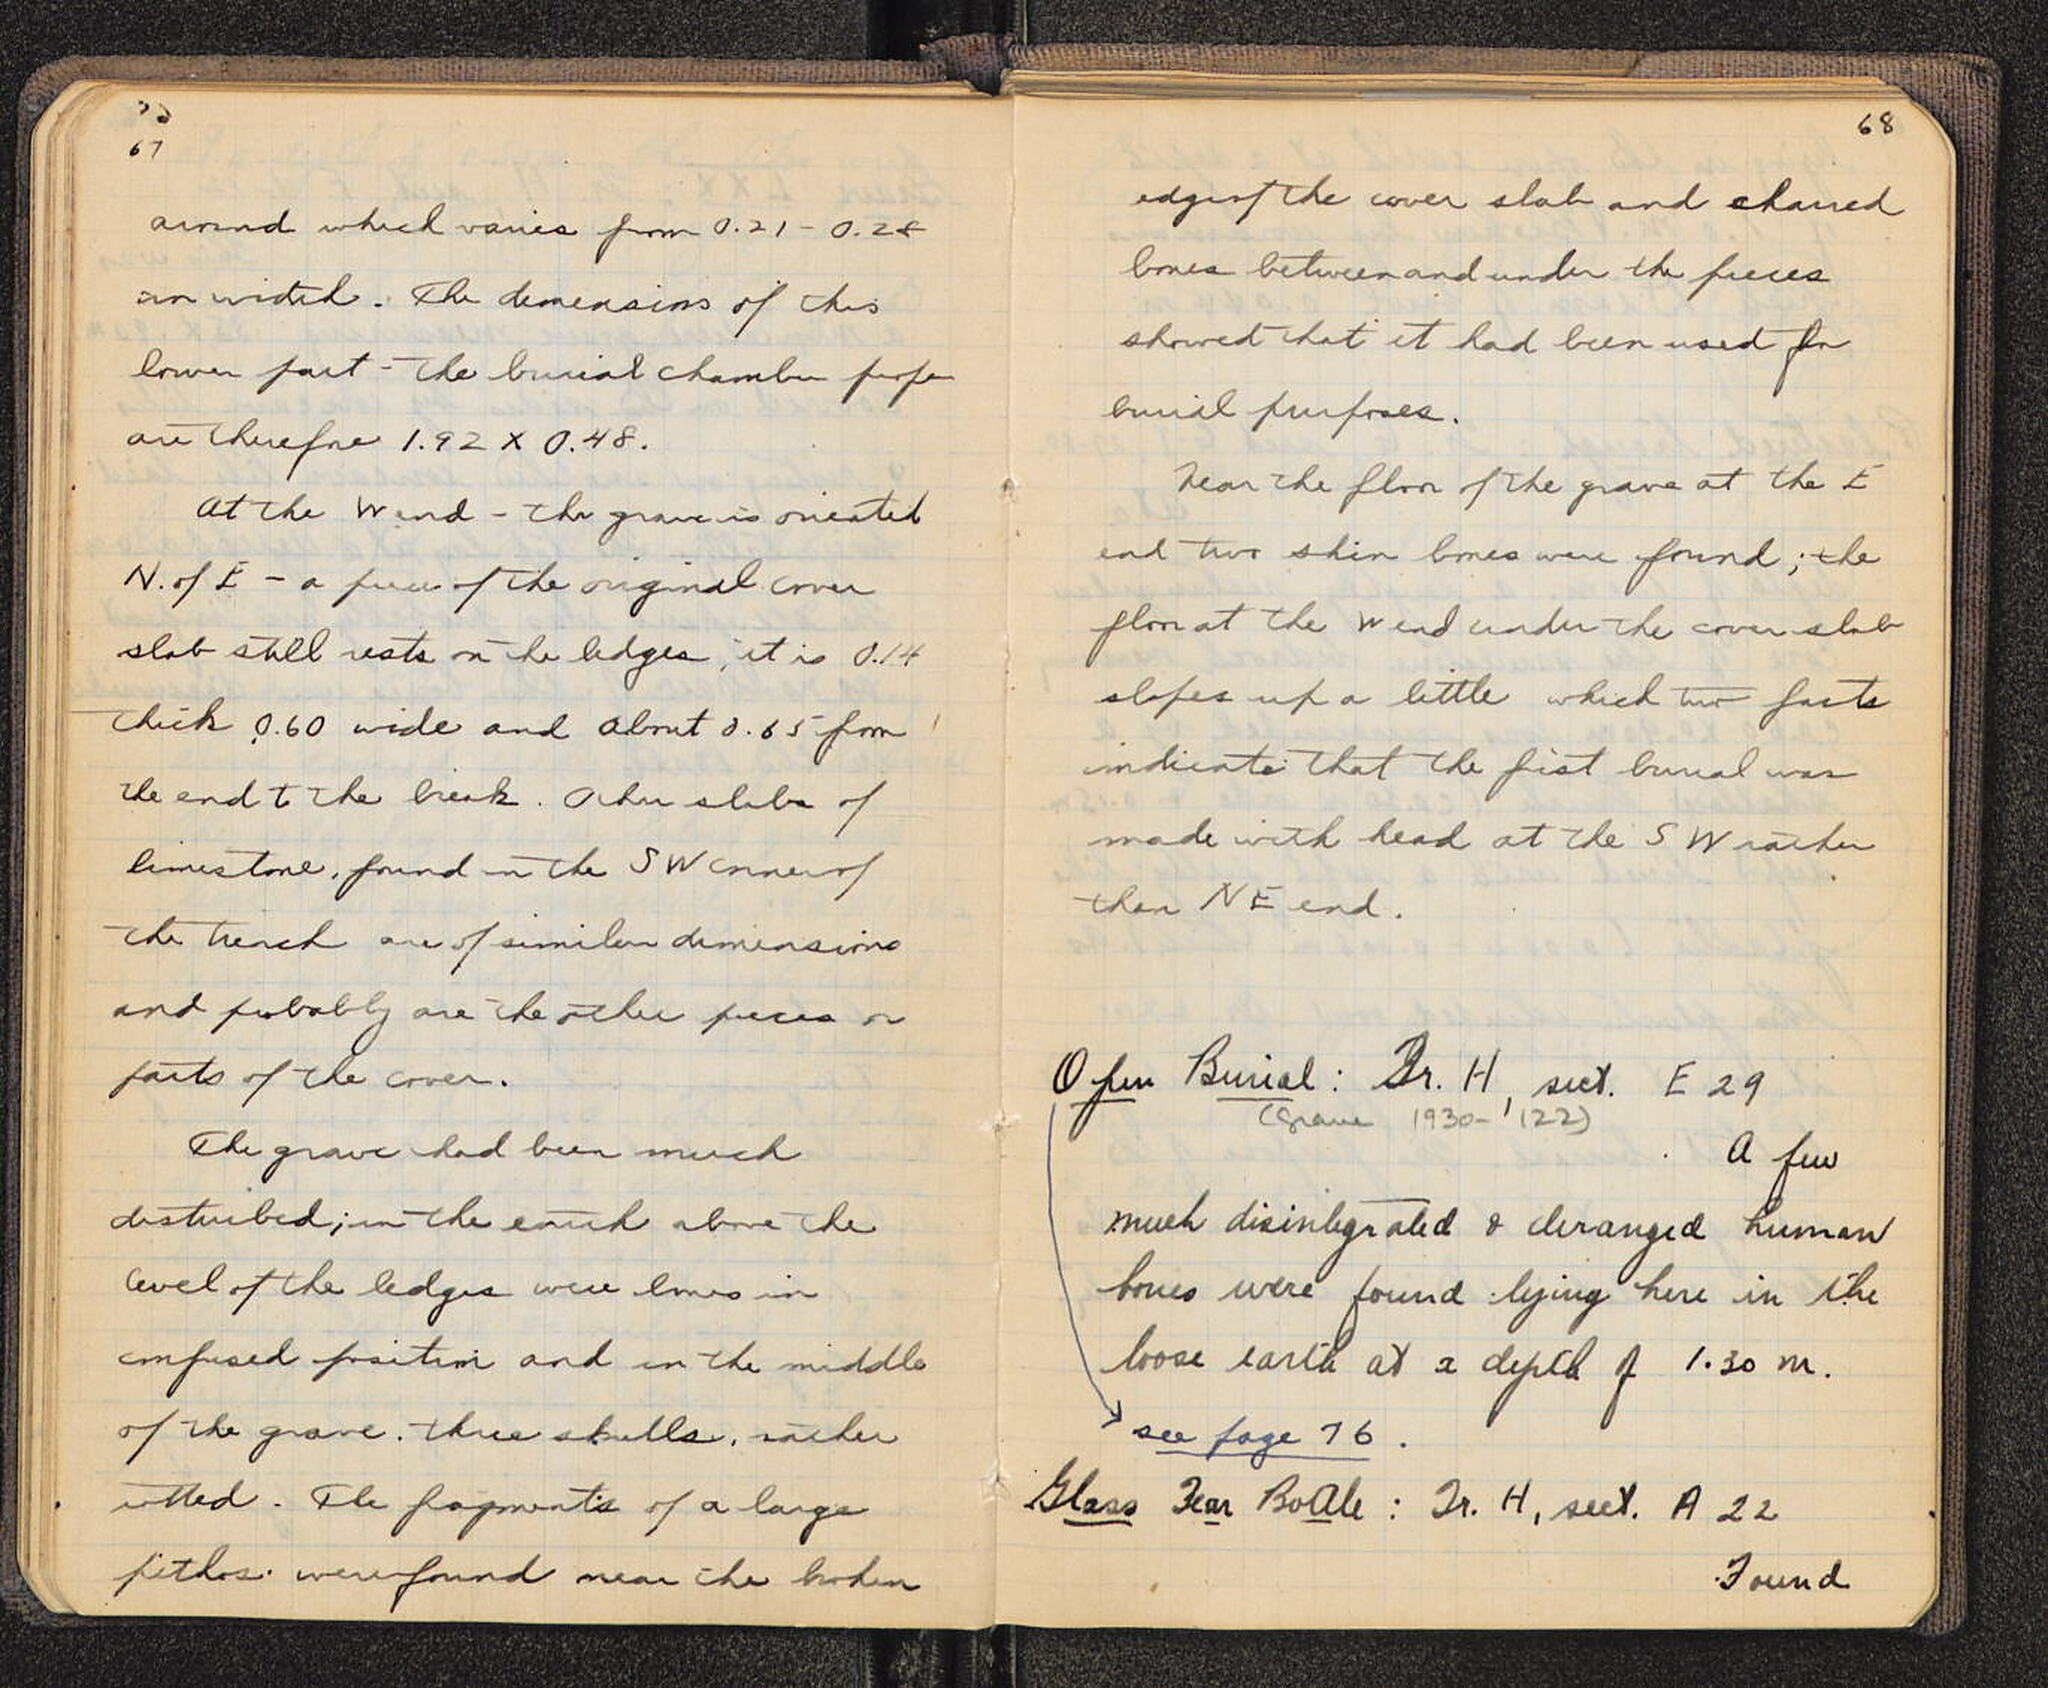 67
around which varies from 0.21 - 0.28
in width. The demensions of this
lower part - the burial chamber proper
are therefore 1.92 X 0.48.
At the W end - the grave is orieated
N. of E - a piece of the original cover
slab still rests on the ledges, it is 0.14
thick 0.60 wide and about 0.65 from
the end to the break. Other slabs of
limestone, found in the SW corner of
the trench are of similar demensions
and probably are the other pieces or
parts of the cover.
The grave had been much
disturbed; in the earth above the
level of the ledges were bones in
confused position and in the middle
of the grave. three skulls, rather
rotted. The fragments of a large
pithos. were found near the broken
68
edge of the cover slab and charred
bones between and under the pieces
showed that it had been used for
burial purposes.
Near the floor of the grave at the E
end two shin bones were found; the
floor at the W end under the cover slab
slopes up a little which two facts
indicate that the first burial was
made with head at the SW rather
than NE end.
Open Burial: Tr. H, sect. E 29
(Grave 1930-122)
A few
much disintegrated & deranged human
bones were found lying here in the
loose earth at a depth of 1.30 m.
see page 76.
Glass Tear Bottle: Tr. H, sect. A 22
Found